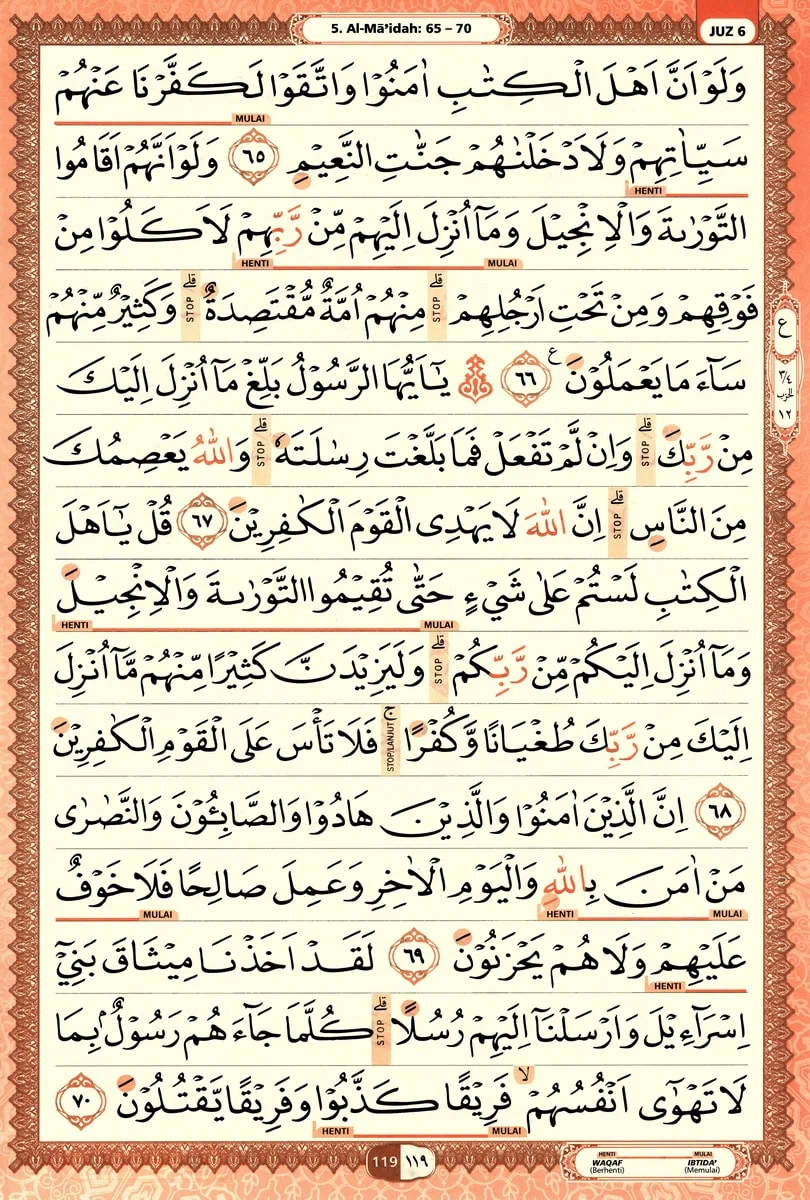 5. Al-Mā'idah: 65 – 70
JUZ 6
وَلَوْ اَنَّ اَهْلَ الْكِتٰبِ اٰمَنُوْا وَاتَّقَوْا لَكَفَّرْنَا عَنْهُمْ
MULAI
سَيِّاٰتِهِمْ وَلَاَدْخَلْنٰهُمْ جَنّٰتِ النَّعِيْمِ ٦٥ وَلَوْ اَنَّهُمْ اَقَامُوا
HENTI
التَّوْرٰىةَ وَالْاِنْجِيْلَ وَمَآ اُنْزِلَ اِلَيْهِمْ مِّنْ رَّبِّهِمْ لَاَكَلُوْا مِنْ
MULAI HENTI
فَوْقِهِمْ وَمِنْ تَحْتِ اَرْجُلِهِمْ ۗ STOP مِنْهُمْ اُمَّةٌ مُّقْتَصِدَةٌ ۗ STOP وَكَثِيْرٌ مِّنْهُمْ
سَآءَ مَا يَعْمَلُوْنَ ࣖ ٦٦ ۞ يٰٓاَيُّهَا الرَّسُوْلُ بَلِّغْ مَآ اُنْزِلَ اِلَيْكَ
مِنْ رَّبِّكَ ۗ STOP وَاِنْ لَّمْ تَفْعَلْ فَمَا بَلَّغْتَ رِسٰلَتَهٗ ۗ STOP وَاللّٰهُ يَعْصِمُكَ
مِنَ النَّاسِ ۗ STOP اِنَّ اللّٰهَ لَا يَهْدِى الْقَوْمَ الْكٰفِرِيْنَ ٦٧ قُلْ يٰٓاَهْلَ
الْكِتٰبِ لَسْتُمْ عَلٰى شَيْءٍ حَتّٰى تُقِيْمُوا التَّوْرٰىةَ وَالْاِنْجِيْلَ
MULAI HENTI
وَمَآ اُنْزِلَ اِلَيْكُمْ مِّنْ رَّبِّكُمْ ۗ STOP وَلَيَزِيْدَنَّ كَثِيْرًا مِّنْهُمْ مَّآ اُنْزِلَ
اِلَيْكَ مِنْ رَّبِّكَ طُغْيَانًا وَّكُفْرًا ۚ STOP/LANJUT فَلَا تَأْسَ عَلَى الْقَوْمِ الْكٰفِرِيْنَ
٦٨ اِنَّ الَّذِيْنَ اٰمَنُوْا وَالَّذِيْنَ هَادُوْا وَالصَّابِـُٔوْنَ وَالنَّصٰرٰى
مَنْ اٰمَنَ بِاللّٰهِ وَالْيَوْمِ الْاٰخِرِ وَعَمِلَ صَالِحًا فَلَا خَوْفٌ
MULAI HENTI MULAI
عَلَيْهِمْ وَلَا هُمْ يَحْزَنُوْنَ ٦٩ لَقَدْ اَخَذْنَا مِيْثَاقَ بَنِيْٓ
HENTI
اِسْرَآءِيْلَ وَاَرْسَلْنَآ اِلَيْهِمْ رُسُلًا ۗ STOP كُلَّمَا جَآءَهُمْ رَسُوْلٌۢ بِمَا
لَا تَهْوٰٓى اَنْفُسُهُمْ ۙ فَرِيْقًا كَذَّبُوْا وَفَرِيْقًا يَّقْتُلُوْنَ ٧٠
MULAI HENTI
ع
٣/٤
الحزب
١٢
119 ١١٩
HENTI MULAI
WAQAF IBTIDA'
(Berhenti) (Memulai)